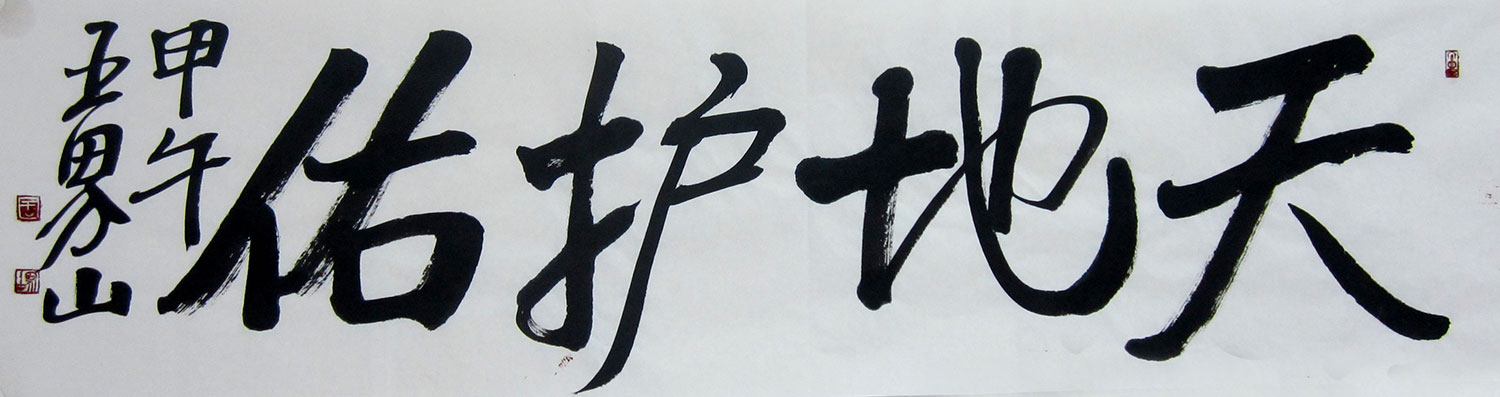 天地护佑
甲午
王界山